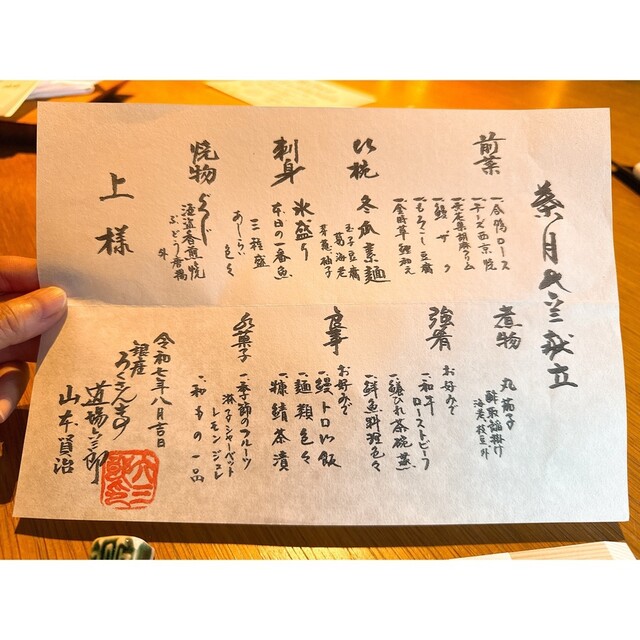 葉月之献立
前菜
一、合鴨ロース
一、チーズ西京焼
一、長茄子胡麻クリーム
一、鰻ザク
一、もろこし豆腐
一、金時草鯉和え
吸椀
冬瓜素麺
玉子豆腐
葛海老
芽葱柚子
刺身
氷盛り
本日の一番魚
三種盛
あしらい色々
焼物
酒盗香煎焼
ぶどう唐揚
外
上様
煮物
丸茄子
酥取餡掛け
海老、枝豆、外
強肴
お好みで
一、和牛ローストビーフ
一、鱶ひれ茶碗蒸
一、鮮魚料理色々
食事
お好みで
一、鰻トロロ飯
一、麺類色々
一、糠鯖茶漬
水菓子
一、季節のフルーツ
淋子シャーベット
レモンジュレ
一、和もの一品
令和七年八月吉日
銀座
ろくさん亭
道場六三郎
山本賢治